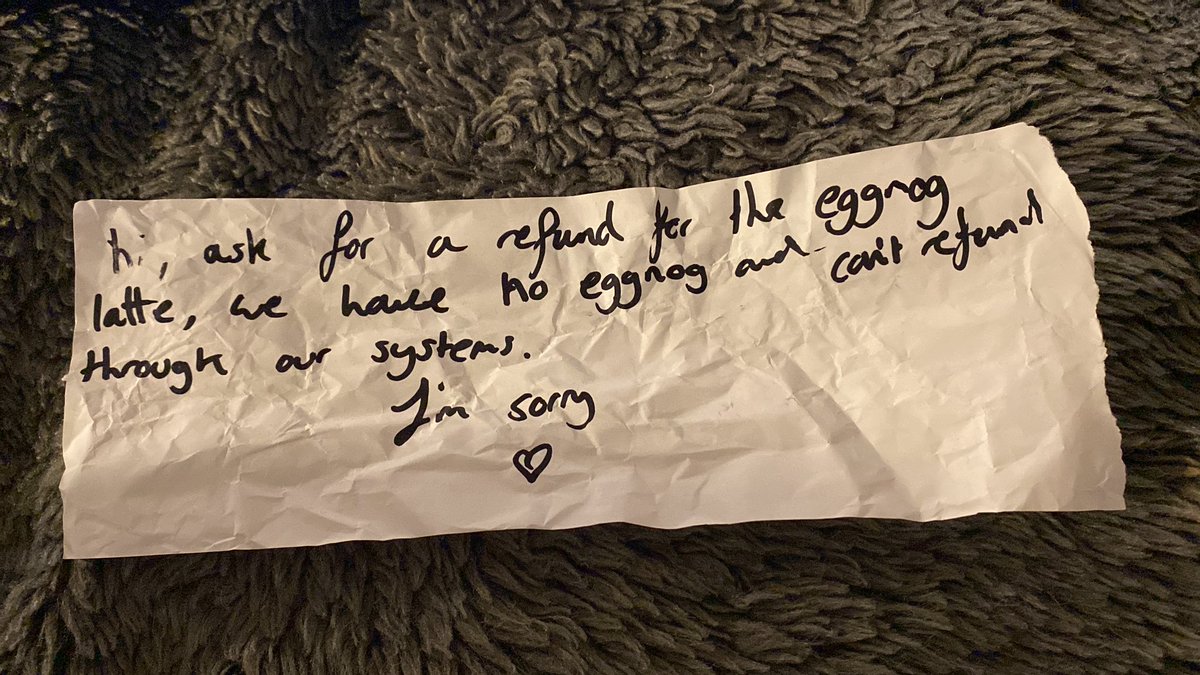 hi, ask for a refund for the eggnog
latte, we have no eggnog and can't refund
through our systems.
I'm sorry
♡